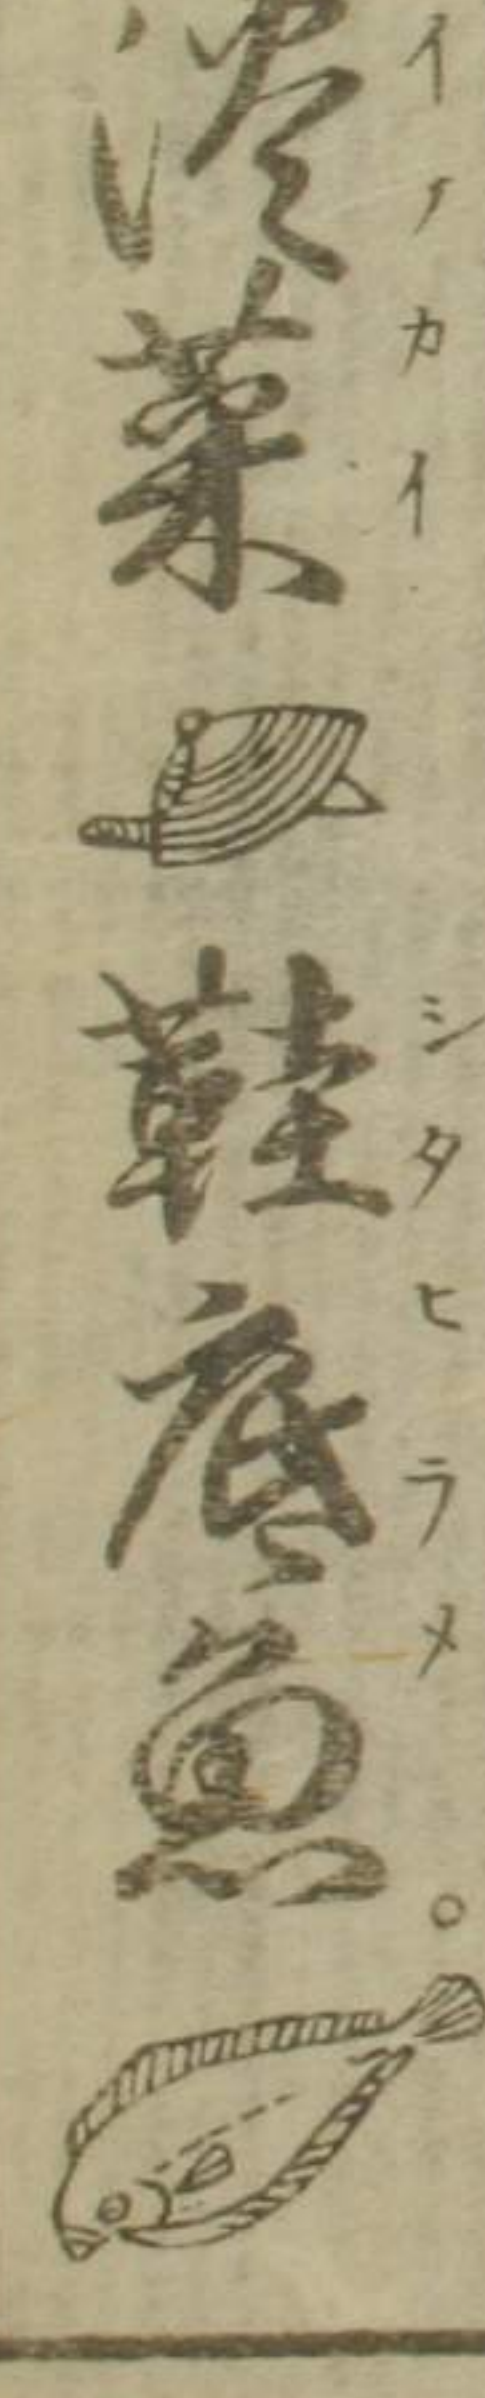 イノカイ
淡菜
シタヒラメ
鞋底魚。